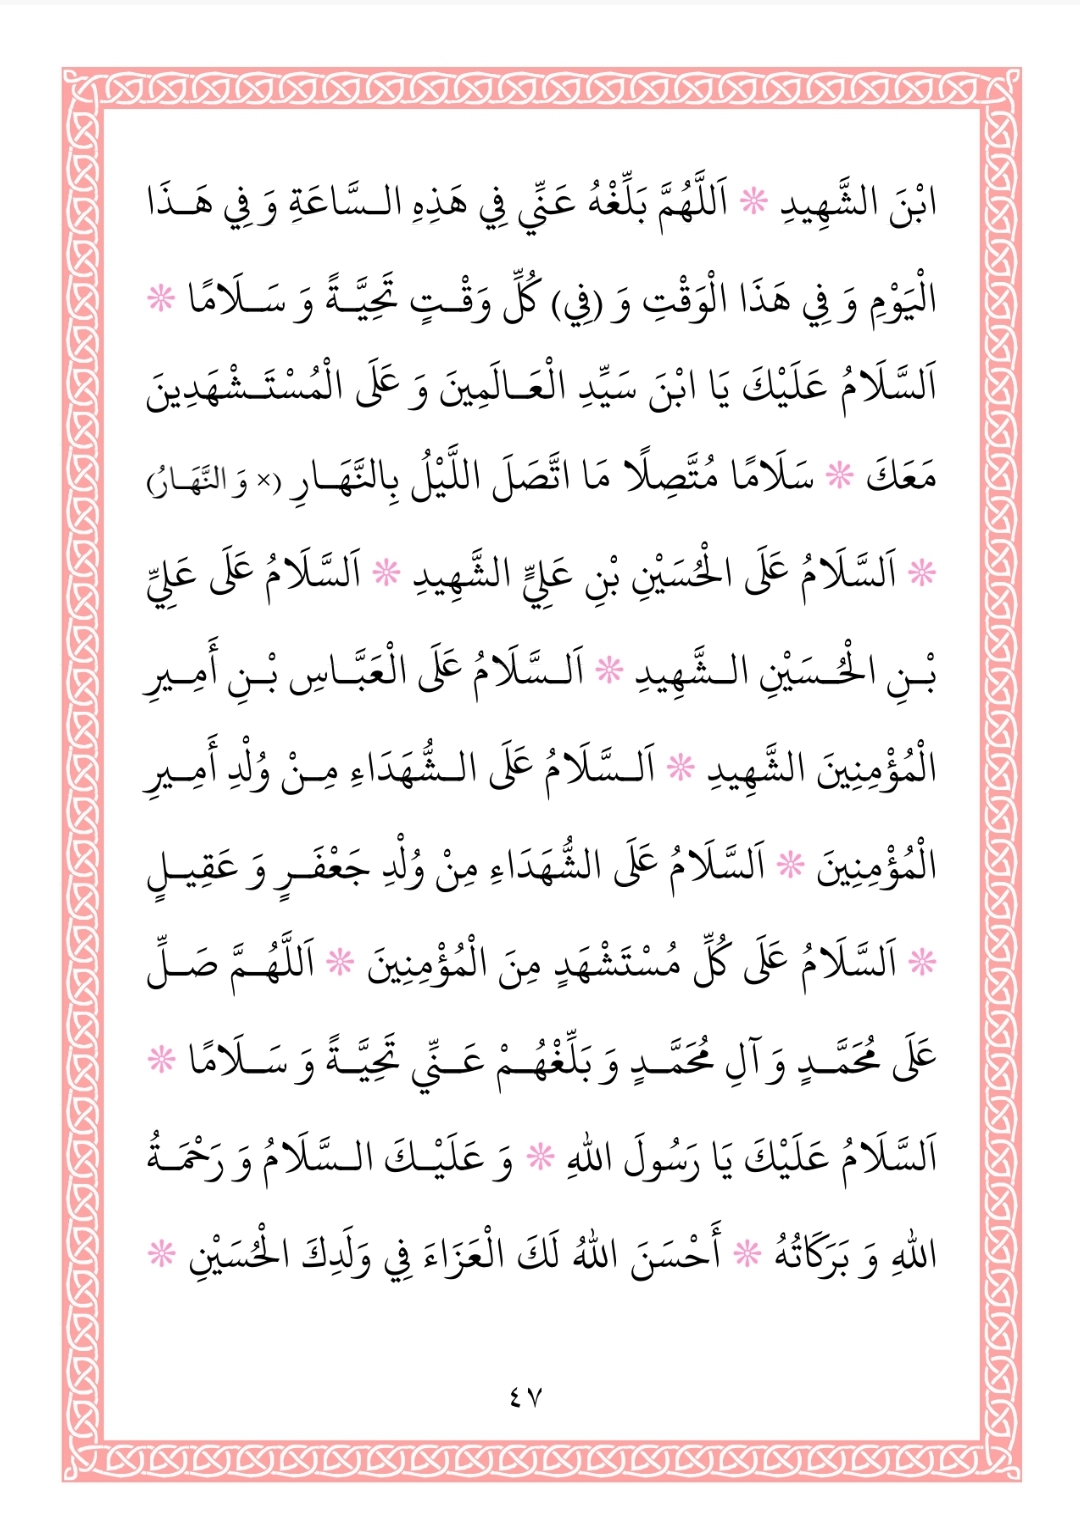 ابْنَ الشَّهِيدِ ❊ اَللَّهُمَّ بَلِّغْهُ عَنِّي فِي هَذِهِ السَّاعَةِ وَ فِي هَذَا
الْيَوْمِ وَ فِي هَذَا الْوَقْتِ وَ (فِي) كُلِّ وَقْتٍ تَحِيَّةً وَ سَلَامًا ❊
اَلسَّلَامُ عَلَيْكَ يَا ابْنَ سَيِّدِ الْعَالَمِينَ وَ عَلَى الْمُسْتَشْهَدِينَ
مَعَكَ ❊ سَلَامًا مُتَّصِلًا مَا اتَّصَلَ اللَّيْلُ بِالنَّهَارِ (× وَ النَّهَارُ)
❊ اَلسَّلَامُ عَلَى الْحُسَيْنِ بْنِ عَلِيٍّ الشَّهِيدِ ❊ اَلسَّلَامُ عَلَى عَلِيِّ
بْنِ الْحُسَيْنِ الشَّهِيدِ ❊ اَلسَّلَامُ عَلَى الْعَبَّاسِ بْنِ أَمِيرِ
الْمُؤْمِنِينَ الشَّهِيدِ ❊ اَلسَّلَامُ عَلَى الشُّهَدَاءِ مِنْ وُلْدِ أَمِيرِ
الْمُؤْمِنِينَ ❊ اَلسَّلَامُ عَلَى الشُّهَدَاءِ مِنْ وُلْدِ جَعْفَرٍ وَ عَقِيلٍ
❊ اَلسَّلَامُ عَلَى كُلِّ مُسْتَشْهَدٍ مِنَ الْمُؤْمِنِينَ ❊ اَللَّهُمَّ صَلِّ
عَلَى مُحَمَّدٍ وَ آلِ مُحَمَّدٍ وَ بَلِّغْهُمْ عَنِّي تَحِيَّةً وَ سَلَامًا ❊
اَلسَّلَامُ عَلَيْكَ يَا رَسُولَ اللهِ ❊ وَ عَلَيْكَ السَّلَامُ وَ رَحْمَةُ
اللهِ وَ بَرَكَاتُهُ ❊ أَحْسَنَ اللهُ لَكَ الْعَزَاءَ فِي وَلَدِكَ الْحُسَيْنِ ❊
٤٧